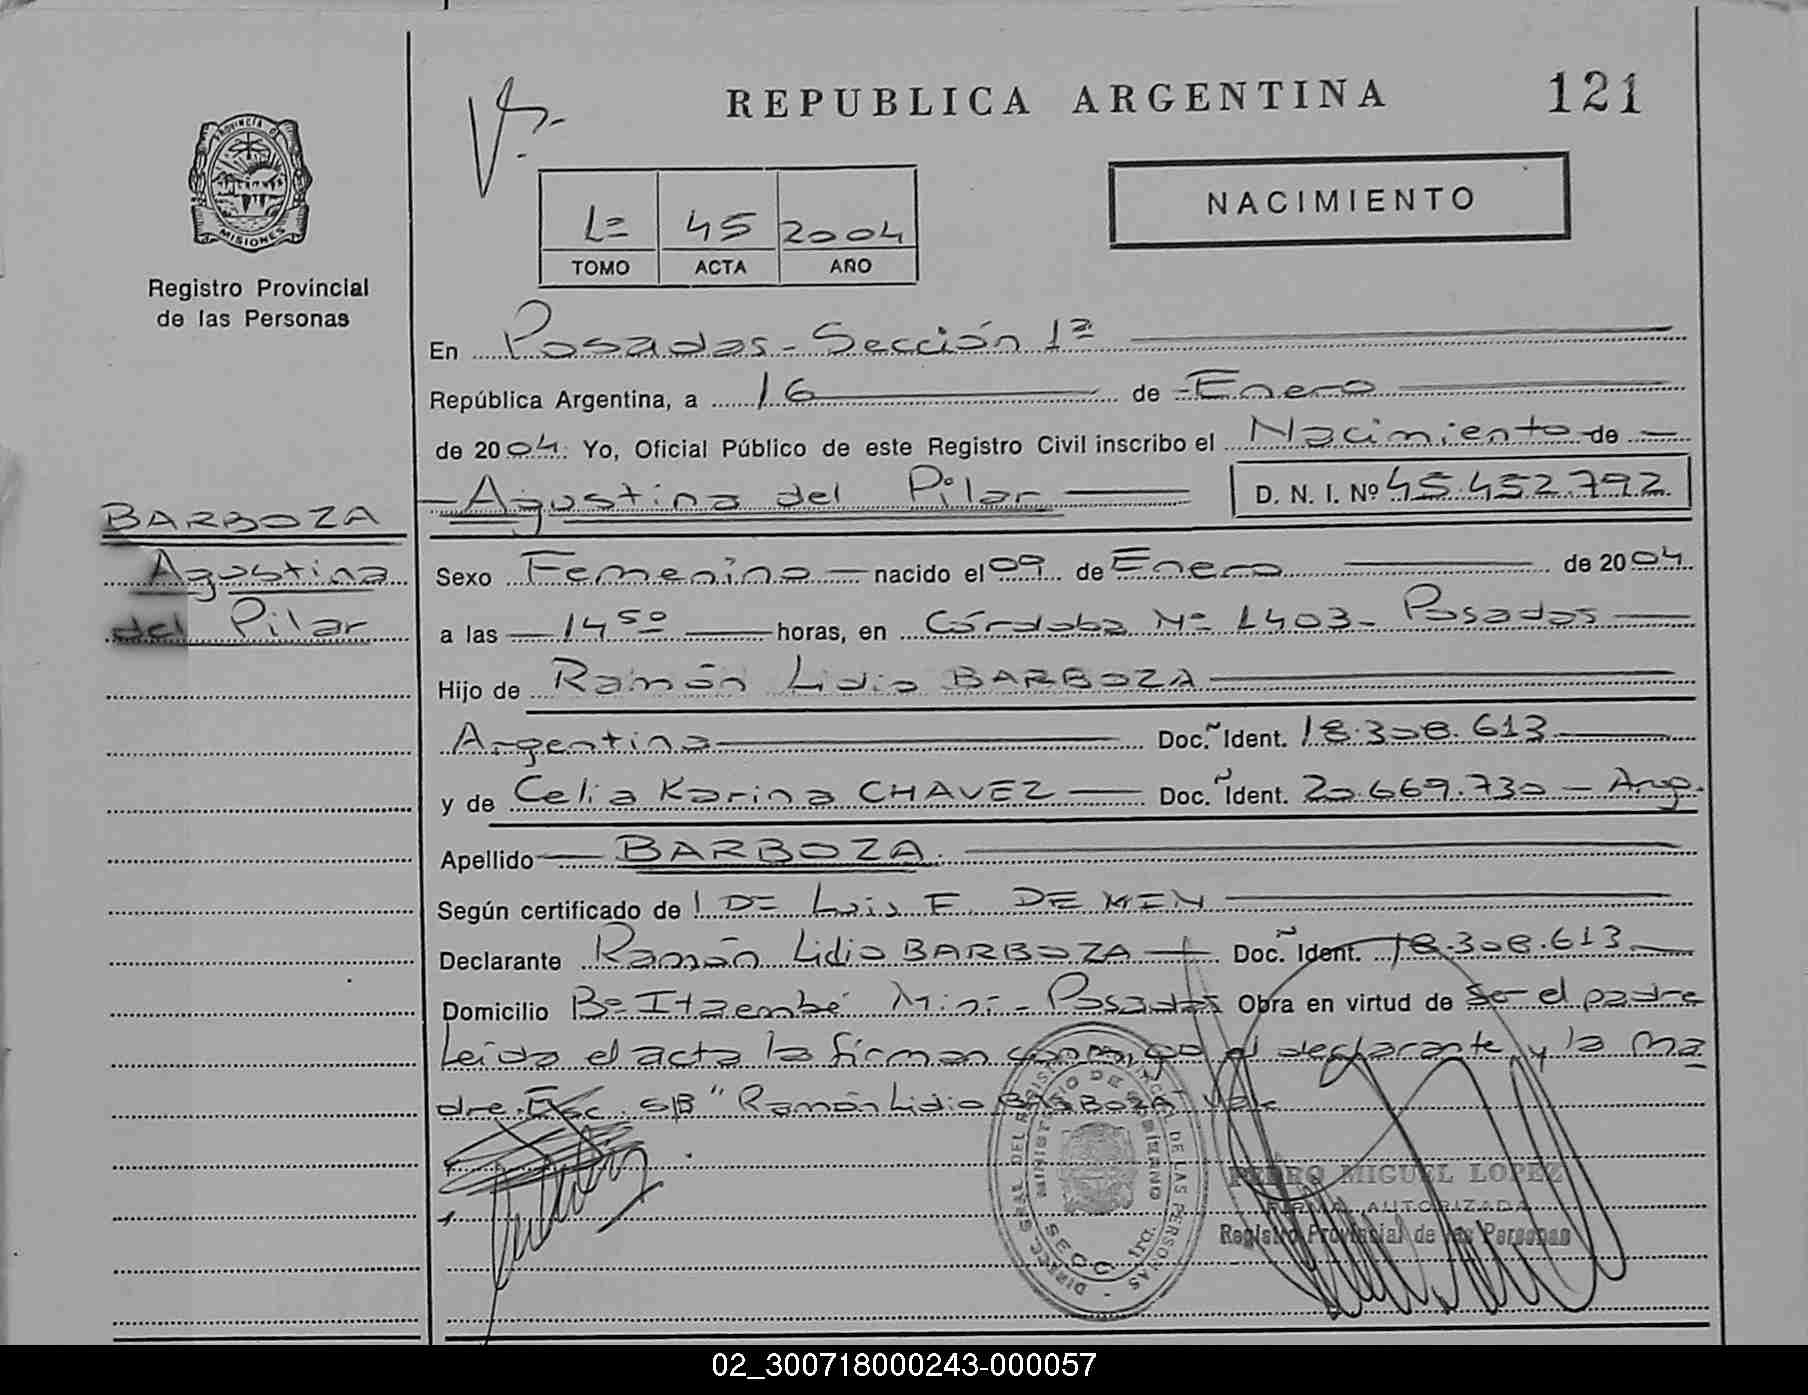 REPUBLICA ARGENTINA
121
PROVINCIA D
MISIONES
Registro Provincial
de las Personas
NACIMIENTO
1º 45 2004
TOMO ACTA AÑO
En Posadas - Sección 1ª
República Argentina, a 16 de Enero
de 2004. Yo, Oficial Público de este Registro Civil inscribo el Nacimiento de
Agustina del Pilar D. N. I. Nº 45.452.792
BARBOZA
Agustina
del Pilar
Sexo Femenino nacido el 09 de Enero de 2004
a las 14 50 horas, en Córdoba Nº 1403 - Posadas
Hijo de Ramón Lidio BARBOZA
Argentina Doc. Ident. 18.308.613
y de Celia Karina CHAVEZ Doc. Ident. 20.669.730 - Arg.
Apellido BARBOZA
Según certificado de Luis F. DEMEN
Declarante Ramón Lidio BARBOZA Doc. Ident. 18.308.613
Domicilio Bº Itaembé Miní - Posadas Obra en virtud de Ser el padre
Leída el acta la firman conmigo el declarante y la ma
dre. S/B "Ramón Lidio BARBOZA" Vale
DIRECC. GRAL. DEL REGIST. PROVINCIAL DE LAS PERSONAS
MINISTERIO DE GOBIERNO
SECC. 1ra.
PEDRO MIGUEL LOPEZ
FIRMA AUTORIZADA
Registro Provincial de las Personas
02_300718000243-000057